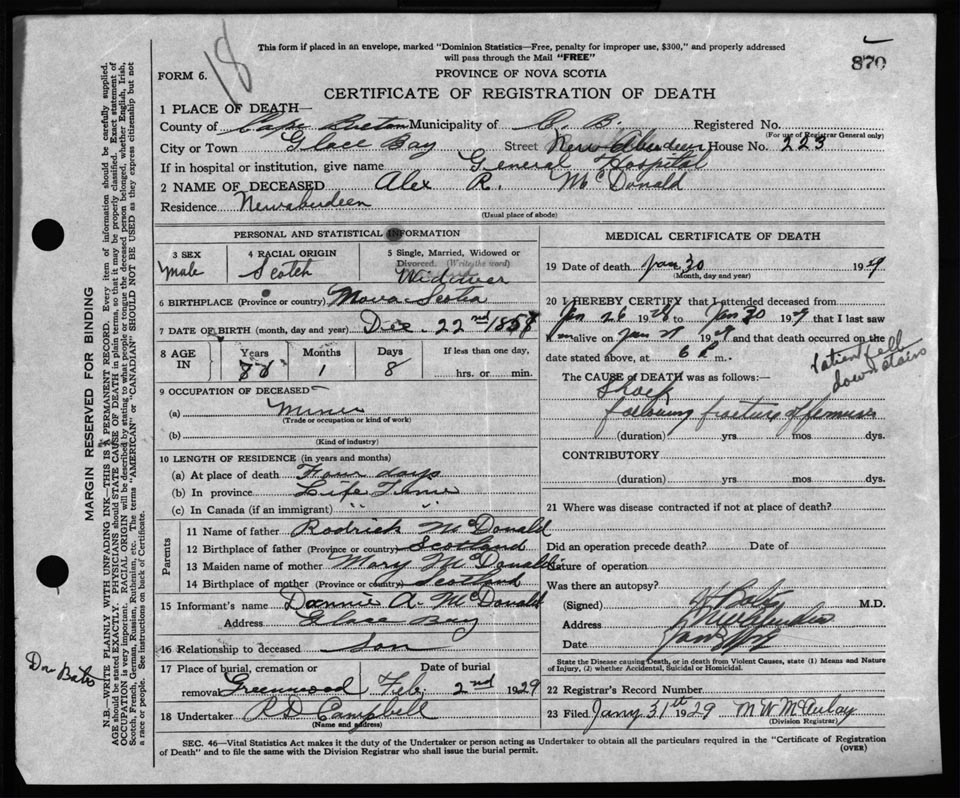 18
This form if placed in an envelope, marked "Dominion Statistics—Free, penalty for improper use, $300," and properly addressed
will pass through the Mail "FREE"
870
FORM 6.
PROVINCE OF NOVA SCOTIA
CERTIFICATE OF REGISTRATION OF DEATH
1 PLACE OF DEATH—
County of Cape Breton Municipality of C. B. Registered No.
(For use of Registrar General only)
City or Town Glace Bay Street New Aberdeen House No. 223
If in hospital or institution, give name General Hospital
2 NAME OF DECEASED Alex R. McDonald
Residence Newaberdeen
(Usual place of abode)
PERSONAL AND STATISTICAL INFORMATION
3 SEX
Male
4 RACIAL ORIGIN
Scotch
5 Single, Married, Widowed or
Divorced. (Write the word)
Widower
6 BIRTHPLACE (Province or country) Nova Scotia
7 DATE OF BIRTH (month, day and year) Dec. 22nd 1858
8 AGE IN
Years
Months
1
Days
8
If less than one day,
hrs. or min.
9 OCCUPATION OF DECEASED
(a) Miner
(Trade or occupation or kind of work)
(b)
(Kind of industry)
10 LENGTH OF RESIDENCE (in years and months)
(a) At place of death Four days
(b) In province Life Time
(c) In Canada (if an immigrant) " "
Parents
11 Name of father Rodrick McDonald
12 Birthplace of father (Province or country) Scotland
13 Maiden name of mother Mary McDonald
14 Birthplace of mother (Province or country) Scotland
15 Informant's name Dannie A. McDonald
Address Glace Bay
16 Relationship to deceased Son
17 Place of burial, cremation or
removal Greenwood
Date of burial
Feb. 2nd 1929
18 Undertaker R D Campbell
(Name and address)
MEDICAL CERTIFICATE OF DEATH
19 Date of death Jan 30 1929
(Month, day and year)
20 I HEREBY CERTIFY that I attended deceased from
Jan 26 1928 to Jan 30 1929 that I last saw
alive on Jan 1929 and that death occurred on the
date stated above, at 6 P m.
Patient fell
down stairs
The CAUSE of DEATH was as follows:—
Shock
following fracture of femur
(duration) yrs. mos dys.
CONTRIBUTORY
(duration) yrs. mos dys.
21 Where was disease contracted if not at place of death?
Did an operation precede death? Date of
Nature of operation
Was there an autopsy?
(Signed) Bates M.D.
Address
Date
State the Disease causing Death, or in death from Violent Causes, state (1) Means and Nature
of Injury, (2) whether Accidental, Suicidal or Homicidal.
22 Registrar's Record Number
23 Filed Jany 31st 1929 M W McAulay
(Division Registrar)
SEC. 46—Vital Statistics Act makes it the duty of the Undertaker or person acting as Undertaker to obtain all the particulars required in the "Certificate of Registration
of Death" and to file the same with the Division Registrar who shall issue the burial permit.
(OVER)
MARGIN RESERVED FOR BINDING
N.B.—WRITE PLAINLY WITH UNFADING INK—THIS IS A PERMANENT RECORD. Every item of information should be carefully supplied.
AGE should be stated EXACTLY. PHYSICIANS should STATE CAUSE OF DEATH in plain terms, so that it may be properly classified. Exact statement of
OCCUPATION is very important. RACIAL ORIGIN will be described by stating to what people or tongue the deceased person belonged, whether English, Irish,
Scotch, French, German, Russian, Ruthenian, etc. The terms "AMERICAN" or "CANADIAN" SHOULD NOT BE USED as they express citizenship but not
a race or people. See instructions on back of Certificate.
Dr Bates